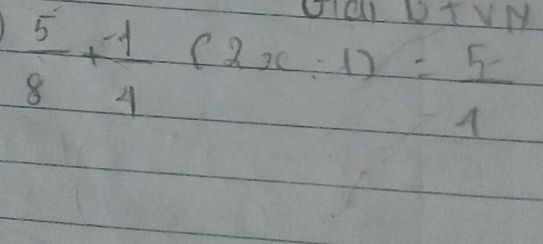 Giải BTVN
) 5/8 + -1/4 (2x - 1) = 5/1